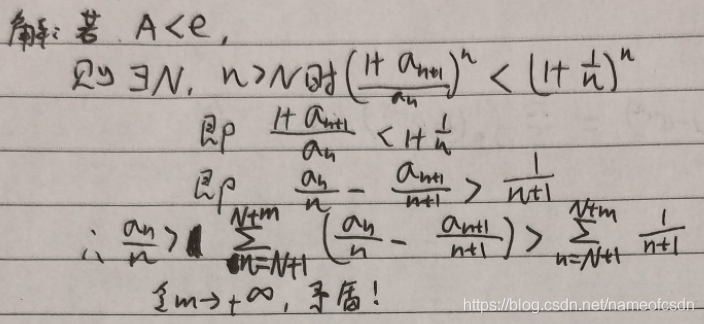 解: 若 A<e,
则 ∃N, n>N时 (\frac{1+a_{n+1}}{a_n})^n < (1+\frac{1}{n})^n
即 \frac{1+a_{n+1}}{a_n} < 1+\frac{1}{n}
即 \frac{a_n}{n} - \frac{a_{n+1}}{n+1} > \frac{1}{n+1}
∴ \frac{a_n}{n} > \sum_{n=N+1}^{N+m} (\frac{a_n}{n} - \frac{a_{n+1}}{n+1}) > \sum_{n=N+1}^{N+m} \frac{1}{n+1}
令m→+∞, 矛盾!
https://blog.csdn.net/nameofcsdn